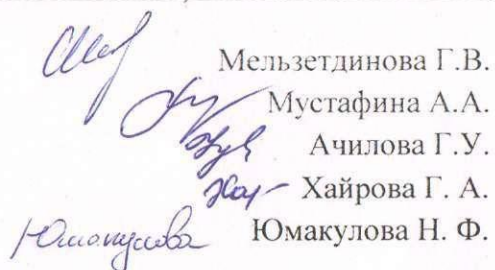 Мельзетдинова Г.В.
Мустафина А.А.
Ачилова Г.У.
Хайрова Г. А.
Юмакулова Юмакулова Н. Ф.